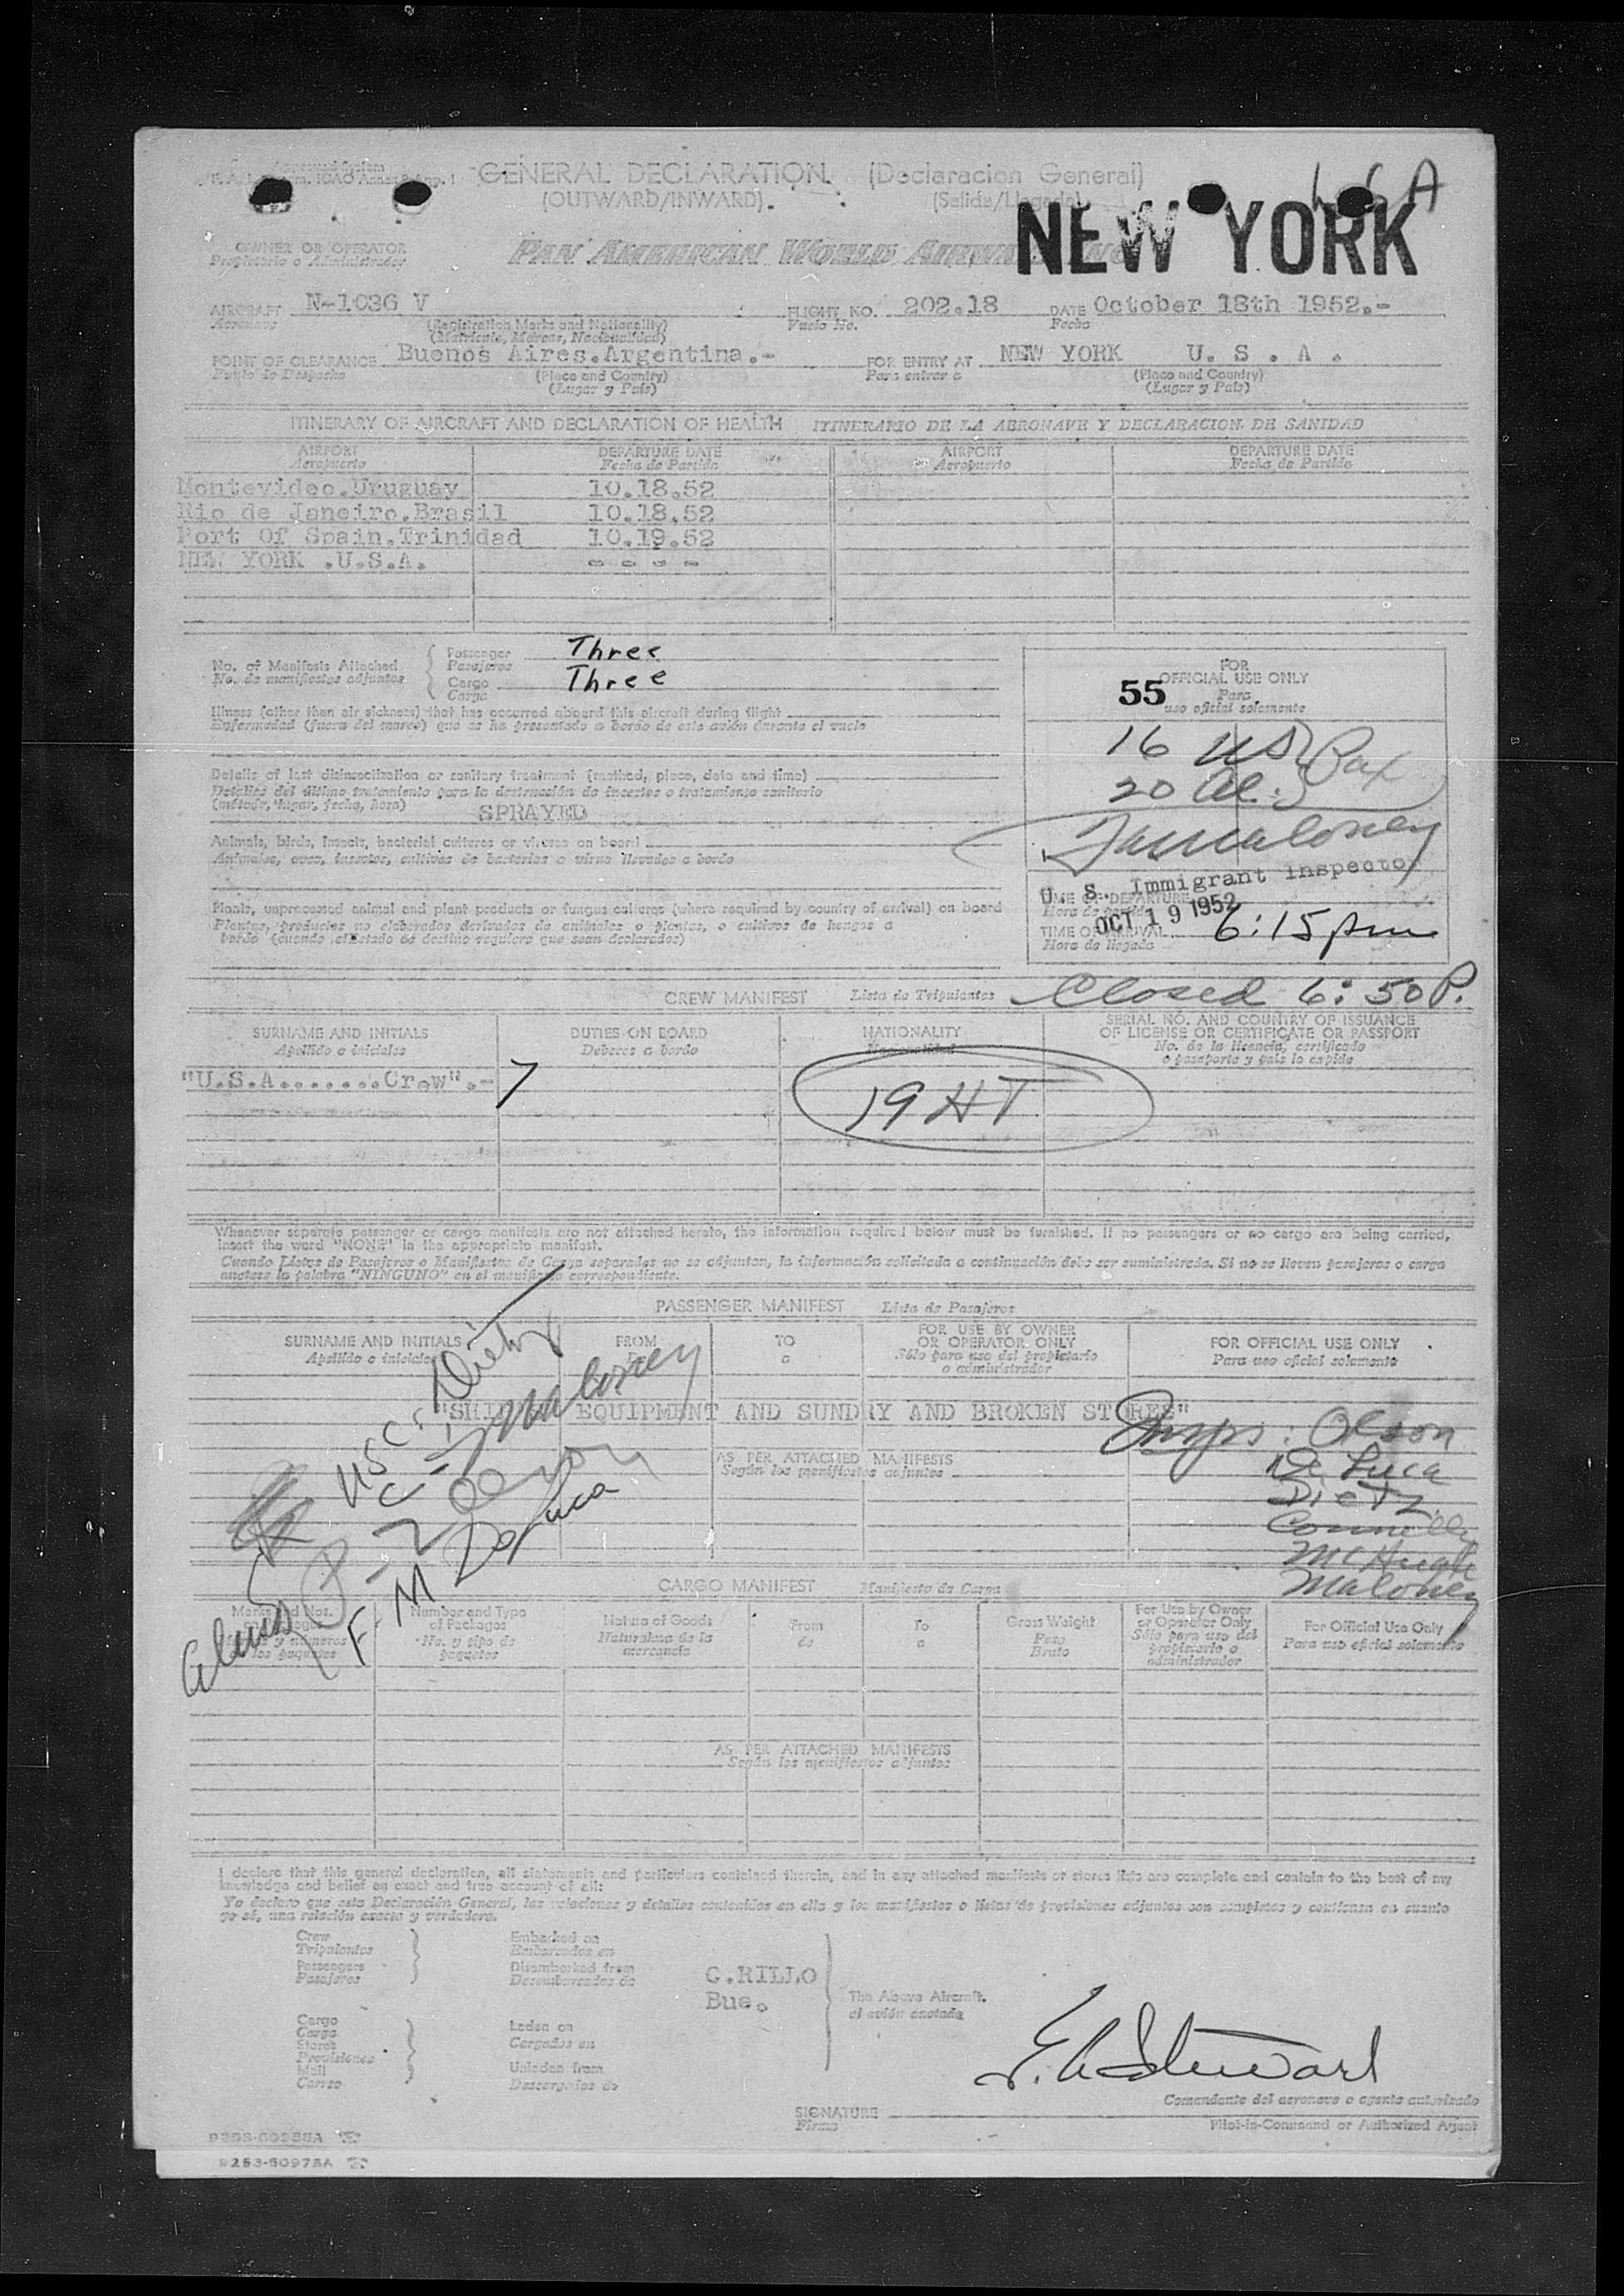 GENERAL DECLARATION (Declaracion General)
(OUTWARD/INWARD). (Salida/Llegada)
NEW YORK
OWNER OR OPERATOR
Propietario o Administrador
PAN AMERICAN WORLD AIRWAYS
AIRCRAFT N-1036 V FLIGHT NO. 202.18 DATE October 18th 1952.-
Aeronave (Registration Marks and Nationality) Vuelo No. Fecha
(Matricula, Marcas, Nacionalidad)
POINT OF CLEARANCE Buenos Aires.Argentina.- FOR ENTRY AT NEW YORK U. S. A.
Punto de Despacho (Place and Country) Para entrar a (Place and Country)
(Lugar y País) (Lugar y País)
ITINERARY OF AIRCRAFT AND DECLARATION OF HEALTH ITINERARIO DE LA AERONAVE Y DECLARACION DE SANIDAD
AIRPORT DEPARTURE DATE AIRPORT DEPARTURE DATE
Aeropuerto Fecha de Partida Aeropuerto Fecha de Partida
Montevideo.Uruguay 10.18.52
Rio de Janeiro.Brasil 10.18.52
Port Of Spain.Trinidad 10.19.52
NEW YORK .U.S.A. - - - -
No. of Manifests Attached
No. de manifiestos adjuntos
Passenger
Pasajeros Three
Cargo
Carga Three
FOR
OFFICIAL USE ONLY
Para
uso oficial solamente
55
Illness (other than air sickness) that has occurred aboard this aircraft during flight
Enfermedad (fuera del mareo) que se ha presentado a bordo de este avión durante el vuelo
16 US Pax
20 Al.
Details of last disinsectization or sanitary treatment (method, place, date and time)
Detalles del último tratamiento para la destrucción de insectos o tratamiento sanitario
(método, lugar, fecha, hora) SPRAYED
Animals, birds, insects, bacterial cultures or viruses on board
Animales, aves, insectos, cultivos de bacterias o virus llevados a bordo
Maloney
U. S. Immigrant Inspector
TIME OF DEPARTURE
Hora de partida
OCT 19 1952
TIME OF ARRIVAL 6:15 pm
Hora de llegada
Plants, unprocessed animal and plant products or fungus cultures (where required by country of arrival) on board
Plantas, productos no elaborados derivados de animales o plantas, o cultivos de hongos a
bordo (cuando el Estado de destino requiera que sean declarados)
CREW MANIFEST Lista de Tripulantes Closed 6:50 P.
SURNAME AND INITIALS DUTIES ON BOARD NATIONALITY SERIAL NO. AND COUNTRY OF ISSUANCE
Apellido e iniciales Deberes a bordo Nacionalidad OF LICENSE OR CERTIFICATE OR PASSPORT
No. de la licencia, certificado
o pasaporte y país lo expide
"U.S.A.......Crew".- 7 19 HT
Whenever separate passenger or cargo manifests are not attached hereto, the information required below must be furnished. If no passengers or no cargo are being carried,
insert the word "NONE" in the appropriate manifest.
Cuando Listas de Pasajeros o Manifiestos de Carga separados no se adjuntan, la información solicitada a continuación debe ser suministrada. Si no se llevan pasajeros o carga
anotese la palabra "NINGUNO" en el manifiesto correspondiente.
PASSENGER MANIFEST Lista de Pasajeros
SURNAME AND INITIALS FROM TO FOR USE BY OWNER FOR OFFICIAL USE ONLY
Apellido e iniciales De a OR OPERATOR ONLY Para uso oficial solamente
Sólo para uso del propietario
o administrador
USC. Dietz
C - Maloney
"SHIP EQUIPMENT AND SUNDRY AND BROKEN STORES"
AS PER ATTACHED MANIFESTS
Según los manifiestos adjuntos
Insps: Olson
De Luca
Dietz
Connelly
McHugh
Maloney
Aliens
B - 2 Olson
F M DeLuca
CARGO MANIFEST Manifiesto de Carga
Marks and Nos. Number and Type Nature of Goods From To Gross Weight For Use by Owner For Official Use Only
of Packages Naturaleza de la de a Peso or Operator Only Para uso oficial solamente
No. y tipo de mercancia Bruto Sólo para uso del
paquetes propietario o
administrador
AS PER ATTACHED MANIFESTS
Según los manifiestos adjuntos
I declare that this general declaration, all statements and particulars contained therein, and in any attached manifests or stores lists are complete and contain to the best of my
knowledge and belief an exact and true account of all:
Yo declaro que esta Declaración General, las relaciones y detalles contenidos en ella y los manifiestos o listas de provisiones adjuntos son completos y contienen en cuanto
yo sé, una relación exacta y verdadera.
Crew
Tripulantes
Passengers
Pasajeros
Embarked on
Embarcados en
Disembarked from
Desembarcados de
G.RILLO
Bue.
The Above Aircraft.
el avión anotado
Cargo
Carga
Stores
Provisiones
Mail
Correo
Laden on
Cargados en
Unladen from
Descargados de
Stewart
Comandante del aeronave o agente autorizado
SIGNATURE
Firma
Pilot-in-Command or Authorized Agent
9253-50975A